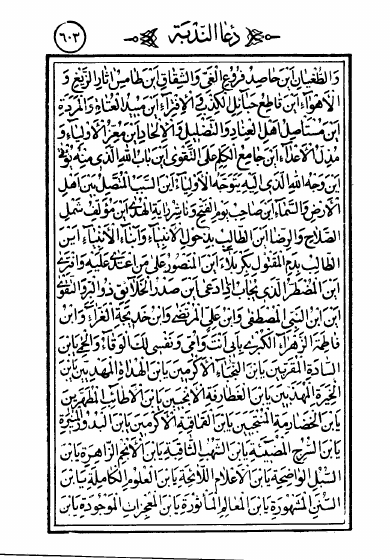 ٦٠٣
دعا الندبة
وَالطُّغْيَانِ اَيْنَ حَاصِدُ فُرُوعِ الْغَىِّ وَالشِّقَاقِ اَيْنَ طَامِسُ اٰثَارِ الزَّيْغِ وَ
الْاَهْوَاءِ اَيْنَ قَاطِعُ حَبَائِلِ الْكِذْبِ وَالْاِفْتِرَاءِ اَيْنَ مُبِيدُ الْعُتَاةِ وَالْمَرَدَةِ
اَيْنَ مُسْتَأْصِلُ اَهْلِ الْعِنَادِ وَالتَّضْلِيلِ وَالْاِلْحَادِ اَيْنَ مُعِزُّ الْاَوْلِيَاءِ وَ
مُذِلُّ الْاَعْدَاءِ اَيْنَ جَامِعُ الْكَلِمِ عَلَى التَّقْوٰى اَيْنَ بَابُ اللهِ الَّذِى مِنْهُ يُؤْتٰى
اَيْنَ وَجْهُ اللهِ الَّذِى اِلَيْهِ يَتَوَجَّهُ الْاَوْلِيَاءُ اَيْنَ السَّبَبُ الْمُتَّصِلُ بَيْنَ اَهْلِ
الْاَرْضِ وَالسَّمَاءِ اَيْنَ صَاحِبُ يَوْمِ الْفَتْحِ وَنَاشِرُ رَايَةِ الْهُدٰى اَيْنَ مُؤَلِّفُ شَمْلِ
الصَّلَاحِ وَالرِّضَا اَيْنَ الطَّالِبُ بِذُحُولِ الْاَنْبِيَاءِ وَاَبْنَاءِ الْاَنْبِيَاءِ اَيْنَ
الطَّالِبُ بِدَمِ الْمَقْتُولِ بِكَرْبَلَاءَ اَيْنَ الْمَنْصُورُ عَلٰى مَنِ اعْتَدٰى عَلَيْهِ وَافْتَرٰى
اَيْنَ الْمُضْطَرُّ الَّذِى يُجَابُ اِذَا دَعٰى اَيْنَ صَدْرُ الْخَلَائِقِ ذُو الْبِرِّ وَالتَّقْوٰى
اَيْنَ ابْنُ النَّبِىِّ الْمُصْطَفٰى وَابْنُ عَلِىٍّ الْمُرْتَضٰى وَابْنُ خَدِيجَةَ الْغَرَّاءِ وَابْنُ
فَاطِمَةَ الزَّهْرَاءِ الْكُبْرٰى بِاَبِى اَنْتَ وَاُمِّى وَنَفْسِى لَكَ الْوِقَاءُ وَالْحِمٰى يَابْنَ
السَّادَةِ الْمُقَرَّبِينَ يَابْنَ النُّجَبَاءِ الْاَكْرَمِينَ يَابْنَ الْهُدَاةِ الْمَهْدِيِّينَ يَابْنَ
الْخِيَرَةِ الْمُهَذَّبِينَ يَابْنَ الْغَطَارِفَةِ الْاَنْجَبِينَ يَابْنَ الْاَطَائِبِ الْمُطَهَّرِينَ
يَابْنَ الْخَضَارِمَةِ الْمُنْتَجَبِينَ يَابْنَ الْقَمَاقِمَةِ الْاَكْرَمِينَ يَابْنَ الْبُدُورِ الْمُنِيرَةِ
يَابْنَ السُّرُجِ الْمُضِيئَةِ يَابْنَ الشُّهُبِ الثَّاقِبَةِ يَابْنَ الْاَنْجُمِ الزَّاهِرَةِ يَابْنَ
السُّبُلِ الْوَاضِحَةِ يَابْنَ الْاَعْلَامِ اللَّائِحَةِ يَابْنَ الْعُلُومِ الْكَامِلَةِ يَابْنَ
السُّنَنِ الْمَشْهُورَةِ يَابْنَ الْمَعَالِمِ الْمَأْثُورَةِ يَابْنَ الْمُعْجِزَاتِ الْمَوْجُودَةِ يَابْنَ